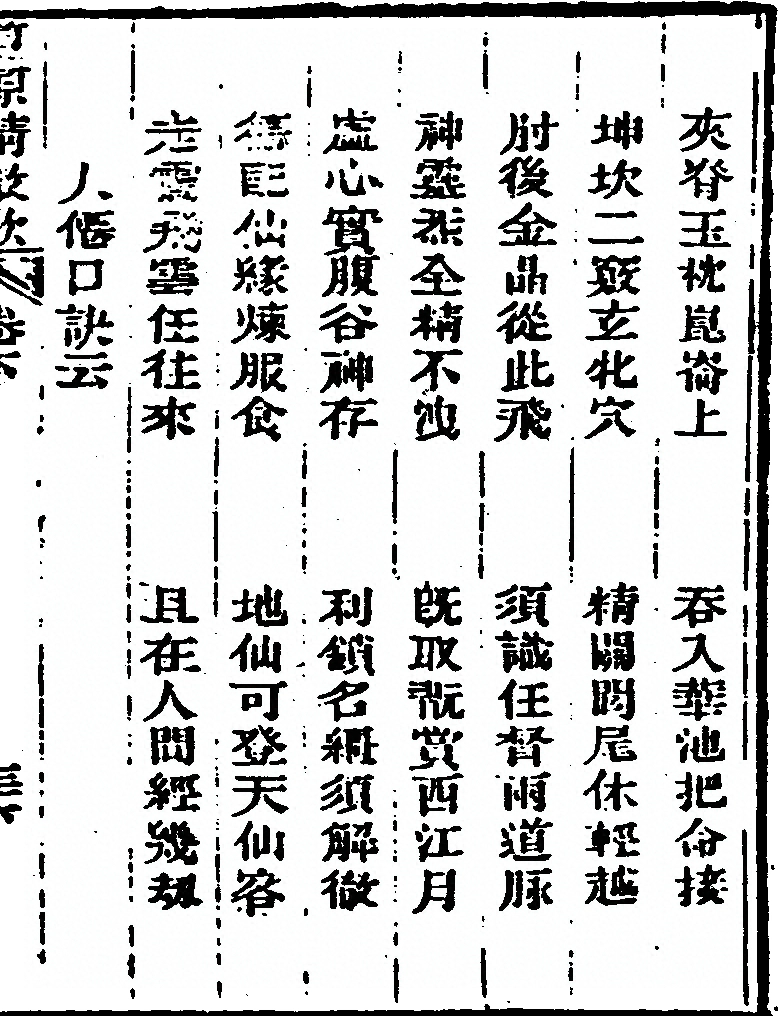 夾脊玉枕崑崙上 吞入華池把命接
坤坎二竅玄牝穴 精關閭尾休輕越
肘後金晶從此飛 須識任督兩道脉
神靈炁全精不洩 旣取旣賞西江月
虛心實腹谷神存 利鎖名繮須解徹
爲配仙緣煉服食 地仙可登天仙客
步霞飛雲任往來 且在人間經幾劫
人僊口訣云